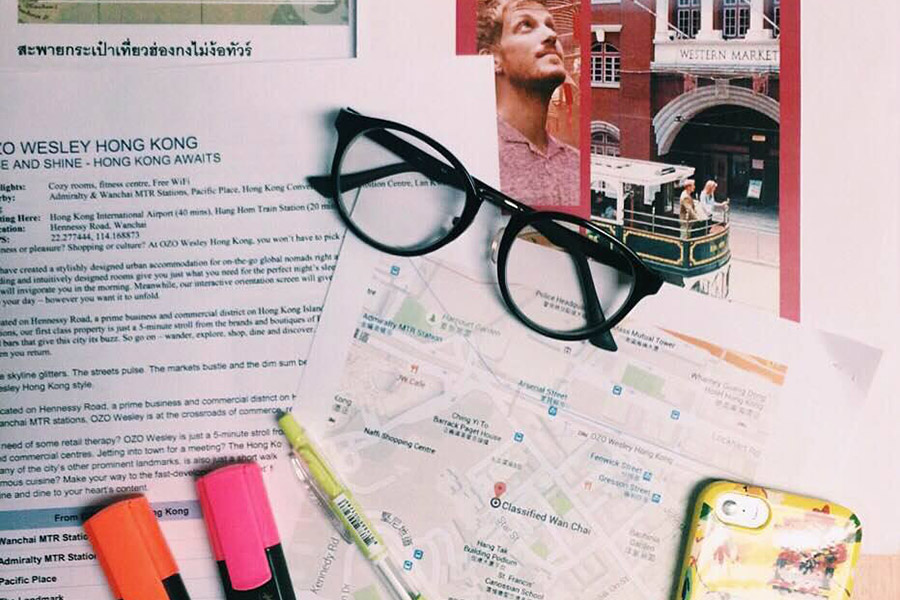 สะพายกระเป๋าเที่ยวฮ่องกงไม่ง้อทัวร์
WESTERN MARKET
ZO WESLEY HONG KONG
E AND SHINE - HONG KONG AWAITS
lights: Cozy rooms, fitness centre, Free WiFi
rby: Admiralty & Wanchai MTR Stations, Pacific Place, Hong Kong Conven
tion Centre, Lan K
ting Here: Hong Kong International Airport (40 mins), Hung Hom Train Station (20 m
ocation: Hennessy Road, Wanchai
PS: 22.277444, 114.168873
ness or pleasure? Shopping or culture? At OZO Wesley Hong Kong, you won't have to pick
have created a stylishly designed urban accommodation for on-the-go global nomads right a
ding and intuitively designed rooms give you just what you need for the perfect night's slee
will invigorate you in the morning. Meanwhile, our interactive orientation screen will give
your day – however you want it to unfold.
ated on Hennessy Road, a prime business and commercial district on Hong Kong Island
ions, our first class property is just a 5-minute stroll from the brands and boutiques of
l bars that give this city its buzz. So go on – wander, explore, shop, dine and discover
en you return.
e skyline glitters. The streets pulse. The markets bustle and the dim sum be
esley Hong Kong style.
cated on Hennessy Road, a prime business and commercial district on H
MTR stations, OZO Wesley is at the crossroads of commerc
need of some retail therapy? OZO Wesley is just a 5-minute stroll fro
nd commercial centres. Jetting into town for a meeting? The Hong Ko
any of the city's other prominent landmarks, is also just a short walk
mous cuisine? Make your way to the fast-develop
ine and dine to your heart's content.
From
ng Kong
Wanchai MTR Statio
Admiralty MTR Stat
Pacific Place
The Landmark
Police Headqua
Mass Mutual Tower
Harcourt Garden
夏慤花園
Admiralty MTR Station
JW Cafe
Wharney Guang Dong
Hotel Hong Kong
Arsenal Street
Kong
Ching Yi To
Barrack Paget House
Naffi Shopping Centre
OZO Wesley Hong Kong
Lockhart Rd
Fenwick Street
Gresson Street
Classified Wan Chai
Hang Tak
Building Podium
St. Francis'
Canossian School
Kennedy Rd
堅尼地道